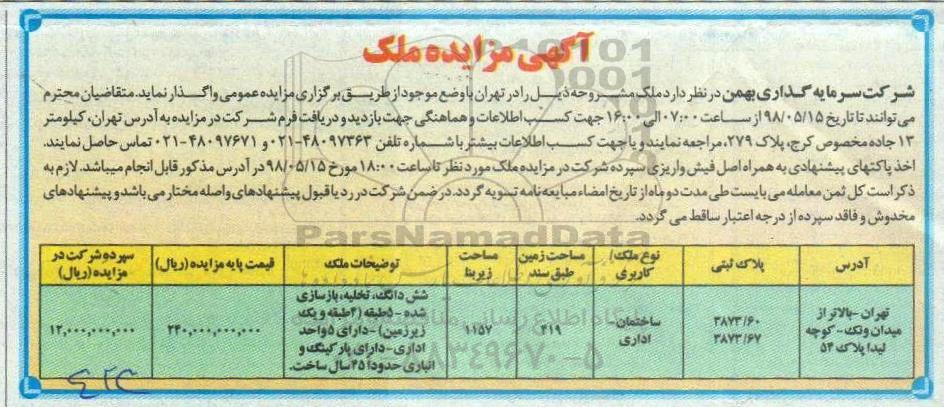 آگهی مزایده ملک
شرکت سرمایه گذاری بهمن در نظر دارد ملک مشروحه ذیل را در تهران با وضع موجود از طریق برگزاری مزایده عمومی واگذار نماید. متقاضیان محترم
می توانند تا تاریخ ۹۸/۰۵/۱۵ از ساعت ۰۷:۰۰ الی ۱۶:۰۰ جهت کسب اطلاعات و هماهنگی جهت بازدید و دریافت فرم شرکت در مزایده به آدرس تهران، کیلومتر
۱۳ جاده مخصوص کرج، پلاک ۲۷۹، مراجعه نمایند و یا جهت کسب اطلاعات بیشتر با شماره تلفن ۴۸۰۹۷۳۶۳-۰۲۱ و ۴۸۰۹۷۶۷۱-۰۲۱ تماس حاصل نمایند.
اخذ پاکتهای پیشنهادی به همراه اصل فیش واریزی سپرده شرکت در مزایده ملک مورد نظر تا ساعت ۱۸:۰۰ مورخ ۹۸/۰۵/۱۵ در آدرس مذکور قابل انجام میباشد. لازم به
ذکر است کل ثمن معامله می بایست طی مدت دو ماه از تاریخ امضاء مبایعه نامه تسویه گردد. در ضمن شرکت در رد یا قبول پیشنهادهای واصله مختار می باشد و پیشنهادهای
مخدوش و فاقد سپرده از درجه اعتبار ساقط می گردد.
ParsNamadData
آدرس پلاک ثبتی نوع ملک/ کاربری مساحت زمین طبق سند مساحت زیربنا توضیحات ملک قیمت پایه مزایده (ریال) سپرده شرکت در مزایده (ریال)
تهران -بالاتر از
میدان ونک- کوچه
لیدا پلاک ۵۴
۳۸۷۳/۶۰
۳۸۷۳/۶۷
ساختمان-
اداری
۴۱۹
۱۱۵۷
شش دانگ، تخلیه، بازسازی
شده -۵طبقه (۴طبقه و یک
زیرزمین) -دارای ۵ واحد
اداری-دارای پارکینگ و
انباری حدوداً ۴۵ سال ساخت.
۲۴۰,۰۰۰,۰۰۰,۰۰۰
۱۲,۰۰۰,۰۰۰,۰۰۰